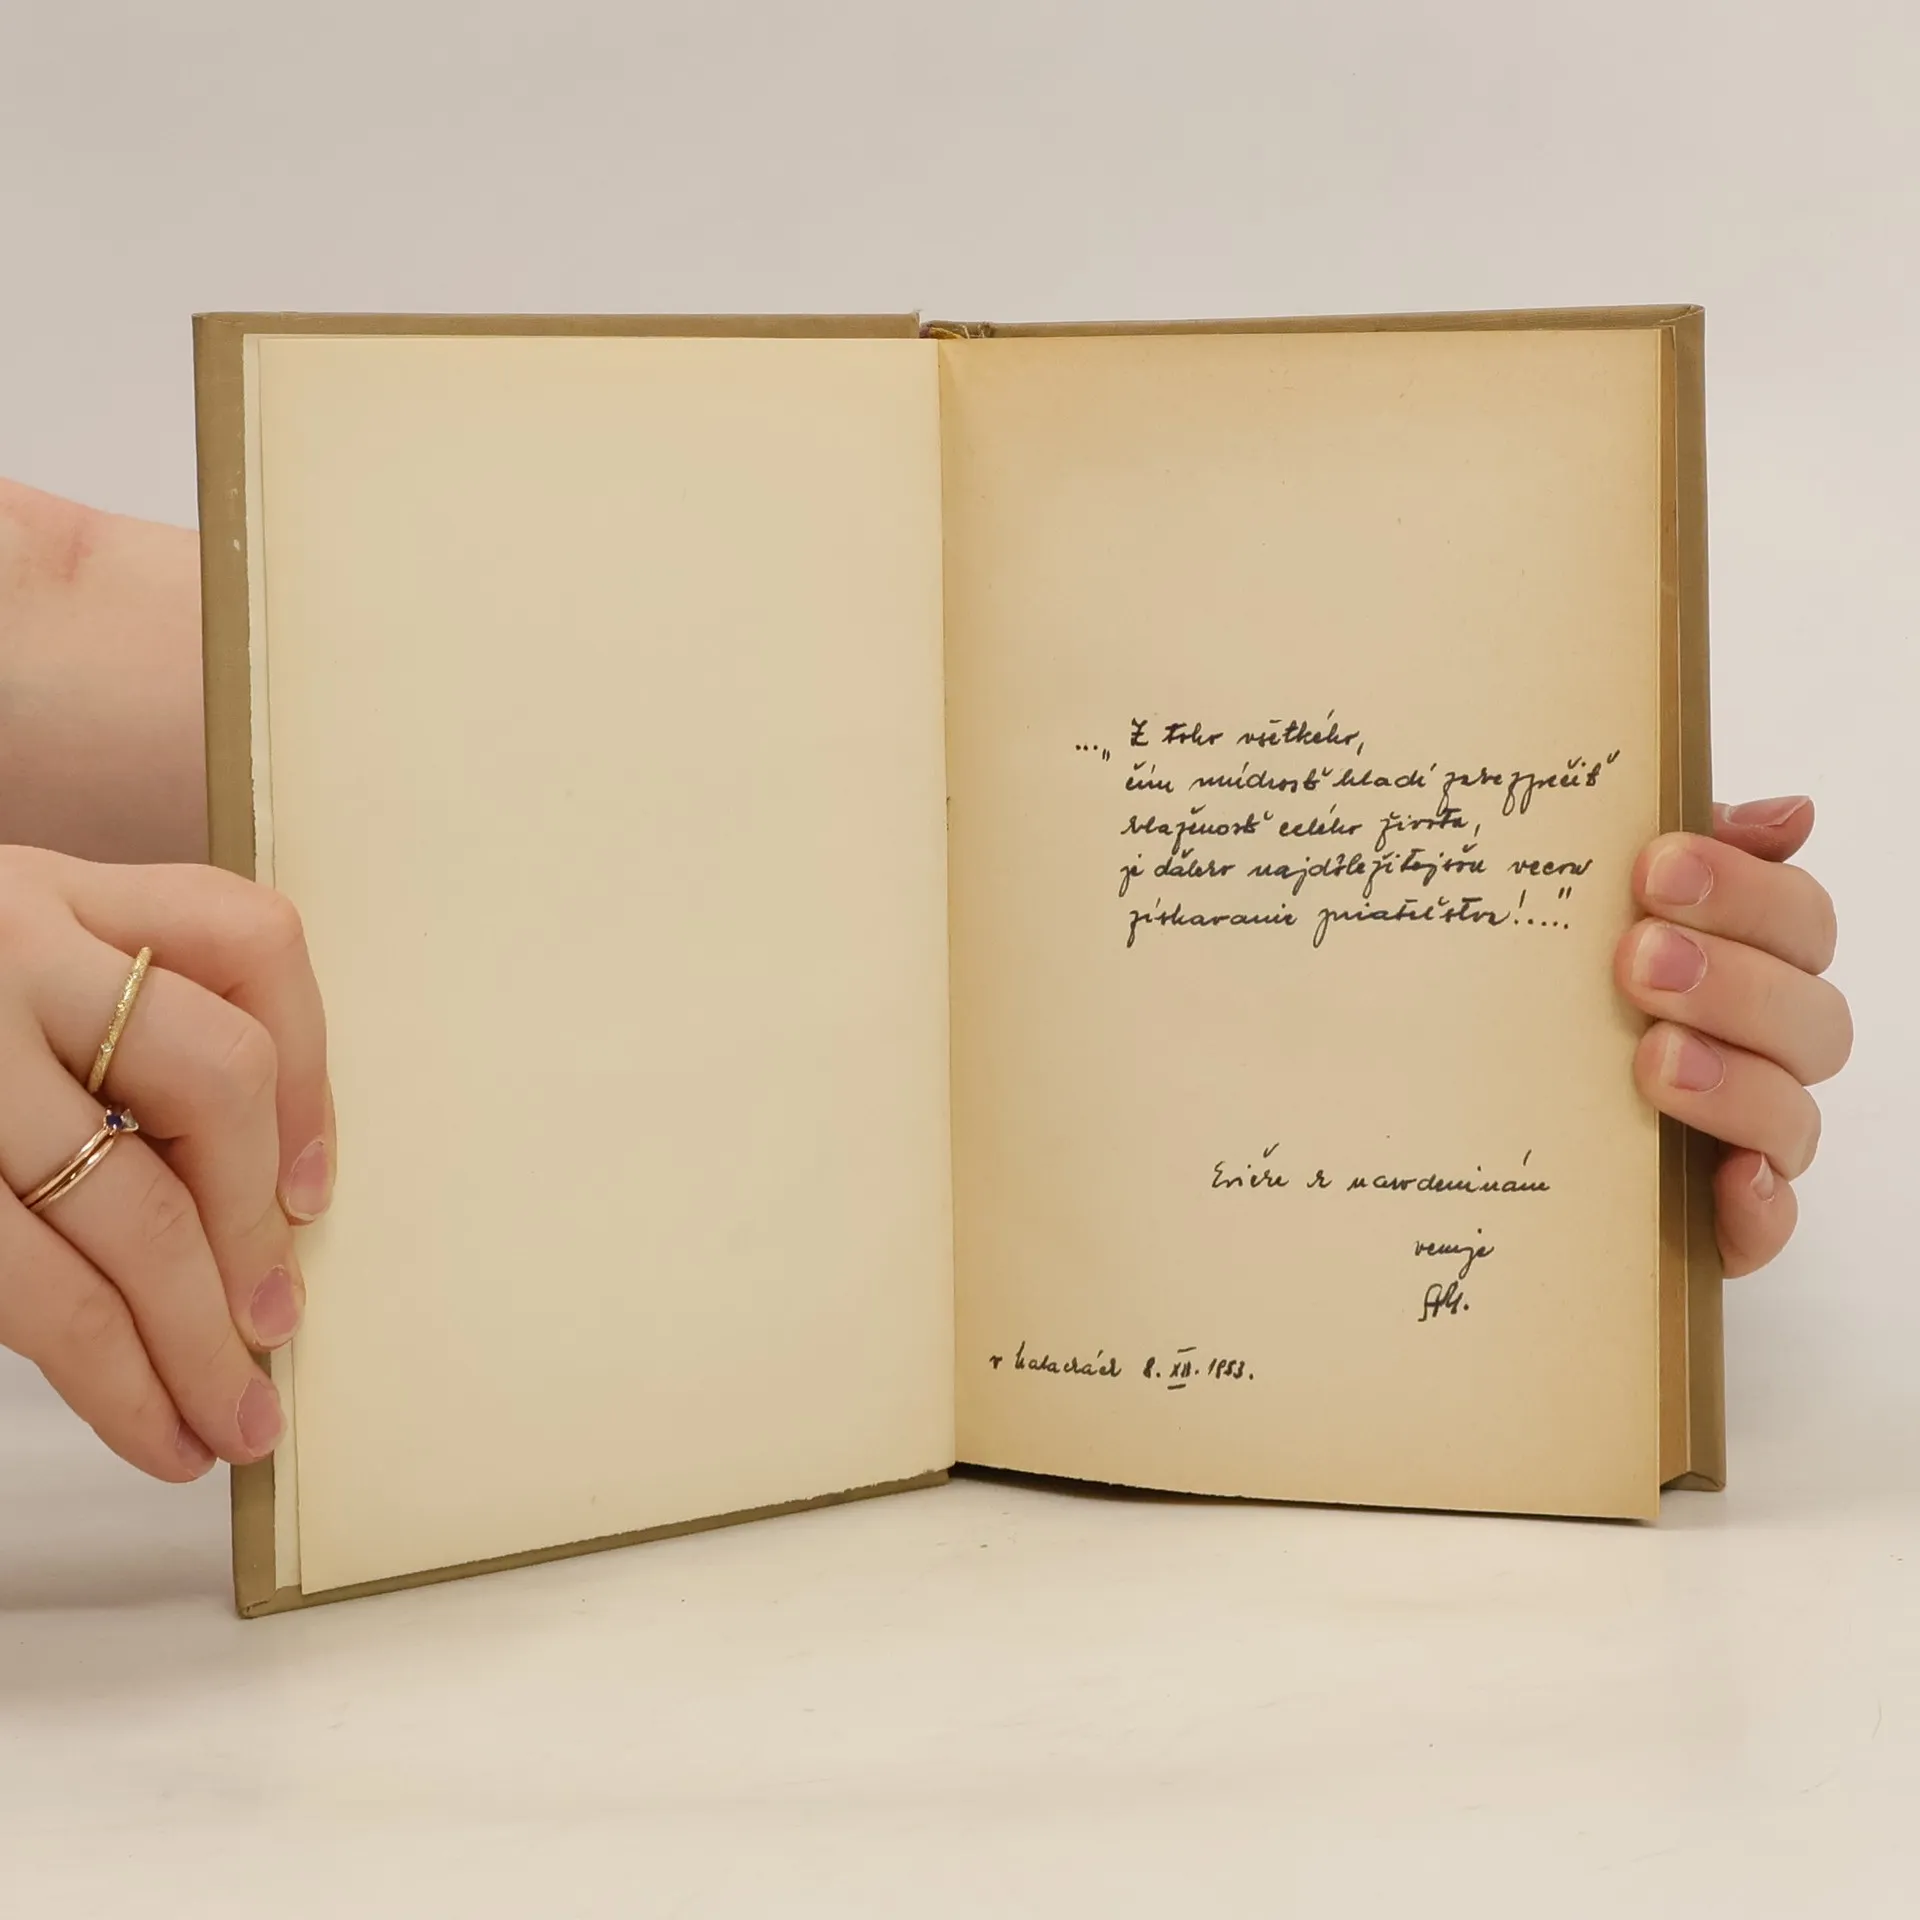 ..." Z toho všetkého,
čím múdrosť hladí zabezpečiť
blaženosť celého života,
je ďaleko najdôležitejšou vecou
získavanie priateľstva!...."
Evičke k narodeninám
venuje
v Malackách 8. XII. 1953.